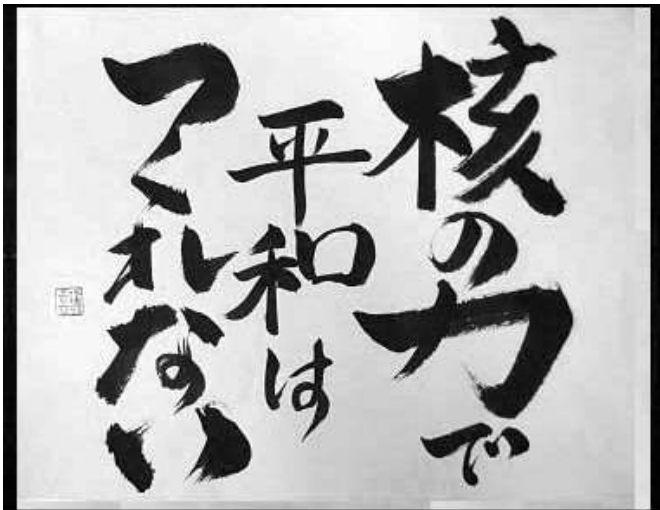 核の力で
平和は
つくれない